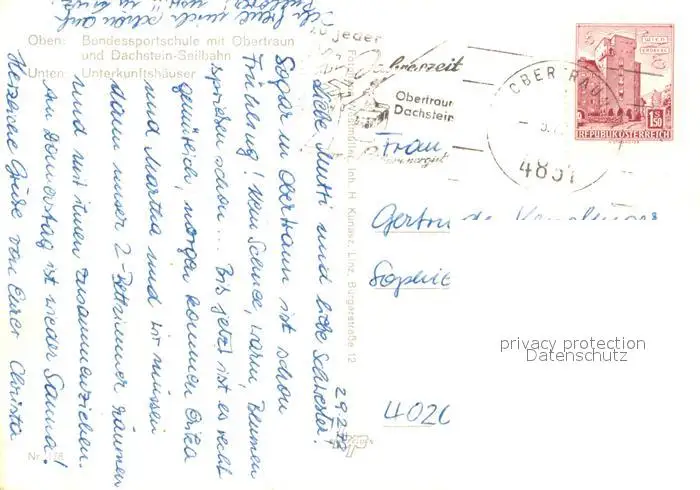 Oben: Bundessportschule mit Obertraun
und Dachstein-Seilbahn
Unten: Unterkunftshäuser
zu jeder
Jahreszeit
Obertraun
Dachstein
OBERTRAUN
4831
WIEN
ERDBERG
1.50
REPUBLIK ÖSTERREICH
29.2.
Liebe Mutti und liebe Schwester!
Sogar in Obertraun ist schon
Frühling! Kein Schnee, warm, Blumen
sprießen schon... Bis jetzt ist es recht
gemütlich, morgen kommen Erika
und Martha und wir müssen
dann unser 2-Bettzimmer räumen
und mit ihnen zusammenziehen.
Am Donnerstag ist wieder Sauna!
Herzliche Grüße von Eurer Christa
Ich freue mich schon auf
H. Kunasz, Linz, Bürgerstraße 12
Frau
Sophie
402
Nr. 178
privacy protection
Datenschutz